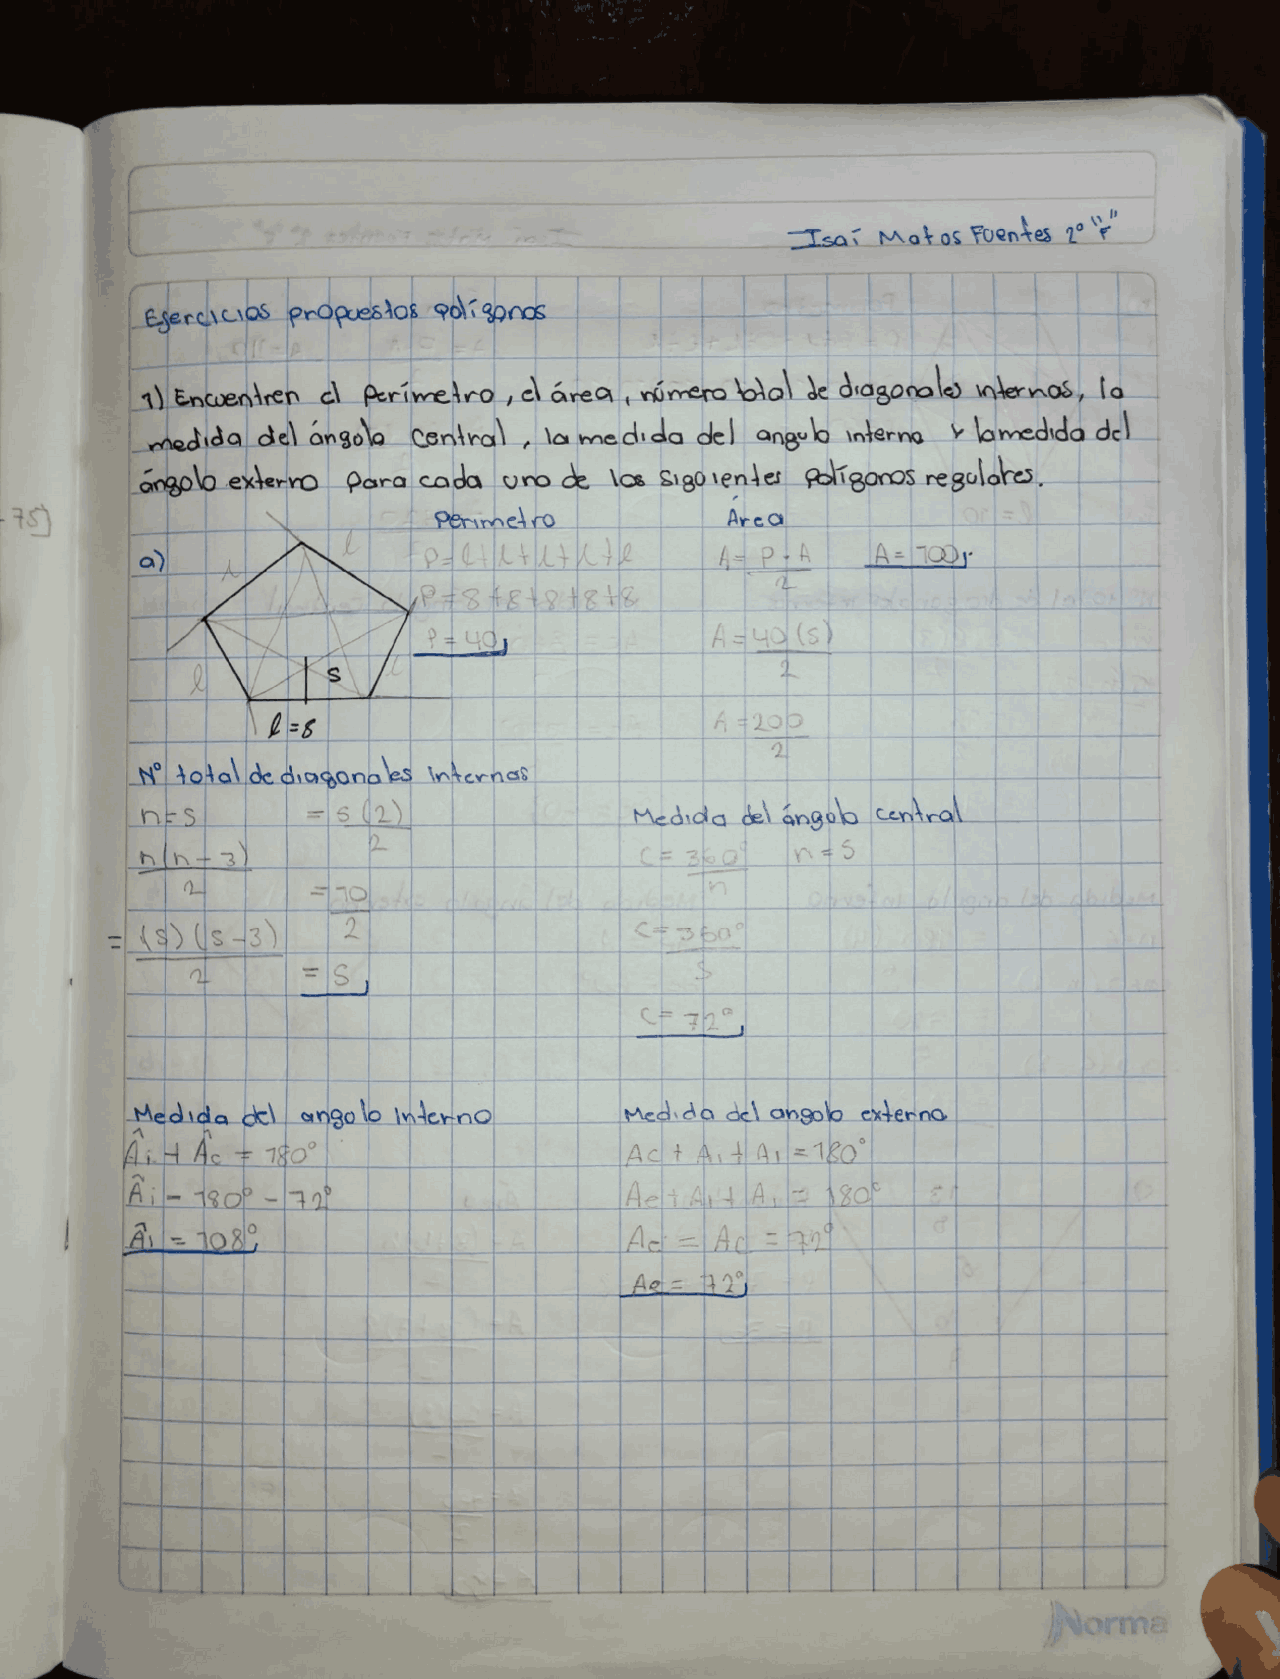 Isaí Matos Fuentes 2° "F"
Ejercicios propuestos polígonos
1) Encuentren el Perímetro, el área, número total de diagonales internas, la
medida del ángulo central, la medida del angulo interno y la medida del
ángolo externo para cada uno de los siguientes polígonos regulares.
-75]
a)
l
l
l
l
5
l=8
Perimetro
P=l+l+l+l+l
P=8+8+8+8+8
P=40
Área
A= P·A / 2
A=40(5) / 2
A=200 / 2
A=100
N° total de diagonales internas
n=5
n(n-3) / 2
= (5)(5-3) / 2
= 5(2) / 2
=10 / 2
= 5
Medida del ángulo central
C= 360° / n
n=5
C=360° / 5
C= 72°
Medida del angolo interno
Âi + Âc = 180°
Âi = 180° - 72°
Âi = 108°
Medida del angolo externo
Ac + Ai + Ai = 180°
Ae + Ai + Ai = 180°
Ae = Ac = 72°
Ae = 72°
Norma